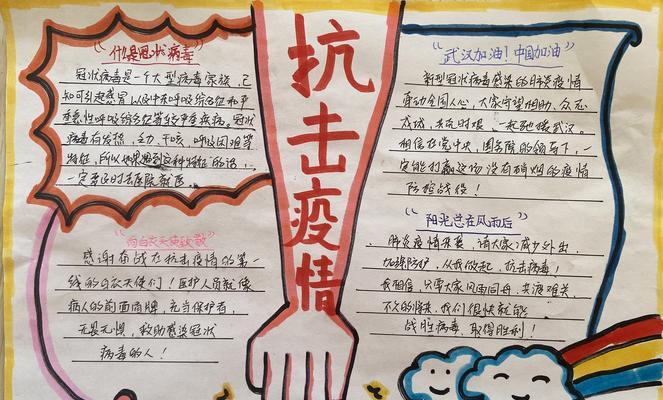 什是冠状病毒
冠状病毒是一个大型病毒家族,已
知可引起感冒以及中东呼吸综合征和严
重急性呼吸综合征等较严重疾病。冠状
病毒有发热、乏力、干咳、呼吸困难等
特征,所以如果遇到这种特征的话,
一定要及时去医院就医。
向白衣天使致敬
感谢奋战在抗击疫情的第一
线的白衣天使们!医护人员就像
病人的前面盾牌,充当保护者,
无畏无惧,救助感染冠状
病毒的人!
抗击疫情
武汉加油!中国加油
新型冠状病毒感染的肺炎疫情
牵动全国人心,大家守望相助、众志
成城,共克时艰,一起驰援武汉。
相信在党中央、国务院的领导下,一
定能打赢这场没有硝烟的疫情
防控战役!
阳光总在风雨后
肺炎疫情来袭,请大家减少外出,
加强防护,从我做起,抗击病毒!
我相信,只要大家风雨同舟、共渡难关,
不久的将来,我们很快就能
战胜病毒、取得胜利!